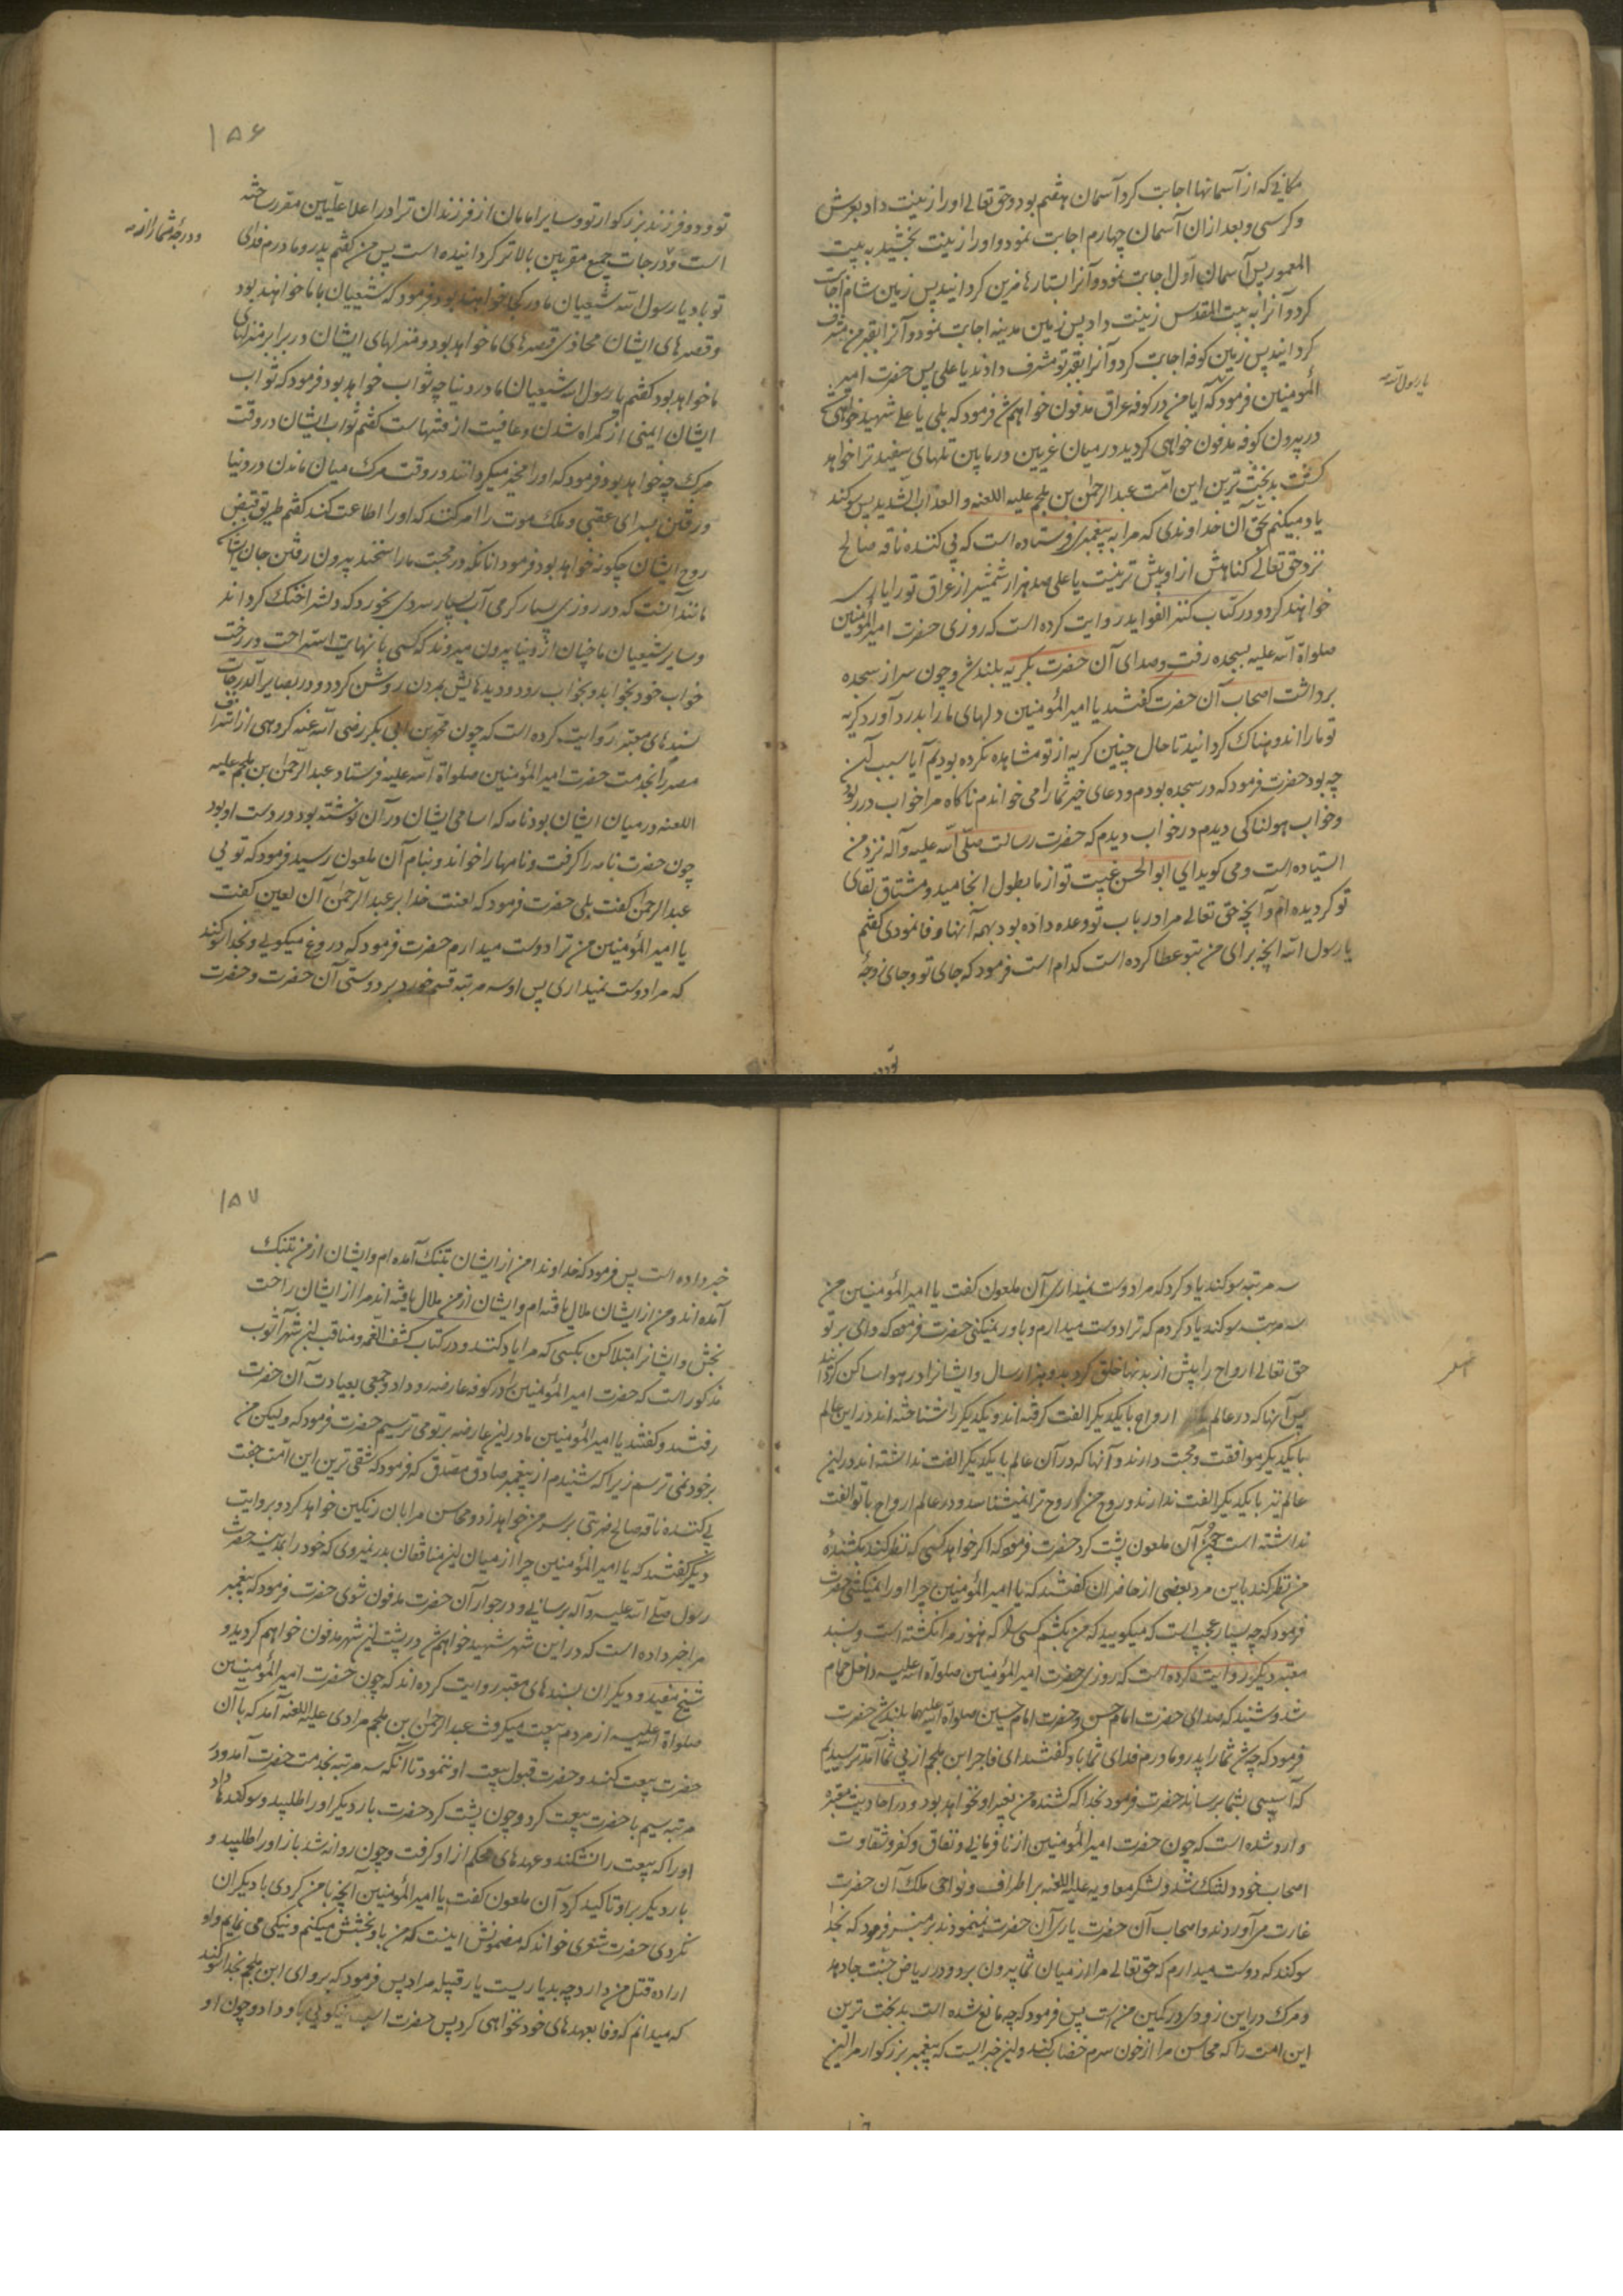 مکانی که از آسمانها اجابت کرد آسمان هفتم بود و حق تعالی او را زینت داد بعرش
و کرسی و بعد از ان آسمان چهارم اجابت نمود و او را زینت بخشید به بیت
المعمور پس آسمان اول اجابت نمود و آنرا بستارها مزین کردانید پس زمین شام اجابت
کرد و آنرا به بیت المقدس زینت داد پس زمین مدینه اجابت نمود و آنرا بقبر من مشرف
کردانید پس زمین کوفه اجابت کرد و آنرا بقبر تو مشرف داد ند یا علی پس حضرت امیر
المؤمنین فرمود که آیا من در کوفه عراق مدفون خواهم شد فرمود که بلی یا علی شهید خواهی شد
یا رسول الله
در بیرون کوفه مدفون خواهی کردید در میان غریین و مابین تلهای سفید ترا خواهد
کشت بدبخت ترین این امت عبد الرحمن بن ملجم علیه اللعنه و العذاب الشدید پس سوکند
یاد میکنم بحق آن خداوندی که مرا به پیغمبری فرستاده است که پی کننده ناقه صالح
نزد حق تعالی کناهش از او بیش تر نیست یا علی صد هزار شمشیر از عراق تو را یاری
خواهند کرد و در کتاب کنز الفواید روایت کرده است که روزی حضرت امیر المؤمنین
صلواة الله علیه بسجده رفت و صدای آن حضرت بکریه بلند شد و چون سر از سجده
برداشت اصحاب آن حضرت کفتند یا امیر المؤمنین دلهای ما را بدرد آورد کریه
تو ما را اندوهناک کردانید تا حال چنین کریه از تو مشاهده نکرده بودیم آیا سبب آن
چه بود حضرت فرمود که در سجده بودم و دعای خیر شما را می خواندم ناکاه مرا خواب در ربود
و خواب هولناکی دیدم در خواب دیدم که حضرت رسالت صلی الله علیه و آله نزد من
ایستاده است و می کوید ای ابو الحسن غیبت تو از ما بطول انجامید و مشتاق لقای
تو کردیده ام و آنچه حق تعالی مرا در باب تو وعده داده بود بهمه آنها وفا نمودی کفتم
یا رسول الله آنچه برای من بتو عطا کرده است کدام است فرمود که جای تو و جای زوجهٔ
تو و دو
۱۵۶
تو و دو فرزند بزرکوار تو و سایر امامان از فرزندان ترا در اعلا علیین مقرر ساخته
است و درجات جمیع مقربین بالاتر کردانیده است پس من کفتم پدر و مادرم فدای
و درجهٔ شما را از
تو باد یا رسول الله شیعیان ما در کجا خواهند بود فرمود که شیعیان با ما خواهند بود
و قصرهای ایشان محاذی قصرهای ما خواهد بود و منزلهای ایشان در برابر منزلهای
ما خواهد بود کفتم یا رسول الله شیعیان ما در دنیا چه ثواب خواهد بود فرمود که ثواب
ایشان ایمنی از کمراه شدن و عافیت از فتنهاست کفتم ثواب ایشان در وقت
مرک چه خواهد بود فرمود که او را مخیر میکردانند در وقت مرک میان ماندن در دنیا
و رفتن بسرای عقبی و ملک موت را امر کنند که او را اطاعت کند کفتم طریق قبض
روح ایشان چکونه خواهد بود فرمود انانکه در محبت ما راسخند بیرون رفتن جان ایشان
مانند آنست که در روزی بسیار کرمی آب بسیار سردی بخورد که دلش را خنک کرداند
و سایر شیعیان ما چنان از دنیا بیرون میروند که کسی با نهایت استراحت در رخت
خواب خود بخوابد و بخواب رود و دیدهایش بمردن روشن کردد و در بصایر الدرجات
بسندهای معتبر روایت کرده است که چون محمد بن ابی بکر رضی الله عنه کروهی از اشراف
مصر را بخدمت حضرت امیر المؤمنین صلواة الله علیه فرستاد عبد الرحمن بن ملجم علیه
اللعنه در میان ایشان بود نامه که اسامی ایشان در آن نوشته بود در دست او بود
چون حضرت نامه را کرفت و نامها را خواند و بنام آن ملعون رسید فرمود که تویی
عبد الرحمن کفت بلی حضرت فرمود که لعنت خدا بر عبد الرحمن آن لعین کفت
یا امیر المؤمنین من ترا دوست میدارم حضرت فرمود که دروغ میکویی و بخدا سوکند
که مرا دوست نمیداری پس او سه مرتبه قسم خورد بر دوستی آن حضرت و حضرت
سه مرتبه سوکند یاد کرد که مرا دوست نمیداری آن ملعون کفت یا امیر المؤمنین من
سه مرتبه سوکند یاد کردم که ترا دوست میدارم و باور نمیکنی حضرت فرمود که وای بر تو
حق تعالی ارواح را پیش از بدنها خلق کرد بدو هزار سال و ایشانرا در هوا ساکن کردانید
پس آنها که در عالم ارواح با یکدیکر الفت کرفته اند و یکدیکر را شناخته اند در این عالم
با یکدیکر موافقت و محبت دارند و آنها که در آن عالم با یکدیکر الفت نداشته اند در این
عالم نیز با یکدیکر الفت ندارند و روح من روح ترا نمیشناسد و در عالم ارواح با تو الفت
نداشته است چون آن ملعون پشت کرد حضرت فرمود که اکر خواهد کسی که نظر کند بکشندهٔ
من نظر کند باین مرد بعضی از حاضران کفتند که یا امیر المؤمنین چرا او را نمیکشی حضرت
فرمود که چه بسیار عجب است که میکویید که من بکشم کسی را که هنوز مرا نکشته است و بسند
معتبر دیکر روایت کرده است که روزی حضرت امیر المؤمنین صلواة الله علیه داخل حمام
شد و شنید که صدای حضرت امام حسن و حضرت امام حسین صلواة الله علیهما بلند شد حضرت
فرمود که چه شد شما را پدر و مادرم فدای شما باد کفتند ای فاجر ابن ملجم از پی شما آمد ترسیدیم
که آسیبی بشما برساند حضرت فرمود بخدا که کشنده من بغیر او نخواهد بود و در احادیث معتبره
وارد شده است که چون حضرت امیر المؤمنین از نافرمانی و نفاق و کفر و شقاوت
اصحاب خود دلتنک شد و لشکر معاویه علیه اللعنه بر اطراف و نواحی ملک آن حضرت
غارت می آوردند و اصحاب آن حضرت یاری آن حضرت نمینمودند بر منبر فرمود که بخدا
سوکند که دوست میدارم که حق تعالی مرا از میان شما بیرون برد و در ریاض جنت جا دهد
و مرک در این زودی در کمین من است پس فرمود که چه مانع شده است بدبخت ترین
این امت را که محاسن مرا از خون سرم خضاب کند و این خبریست که پیغمبر بزرکوار مرا این
۱۵۷
خبر داده است پس فرمود که خداوندا من از ایشان بتنک آمده ام و ایشان از من بتنک
آمده اند و من از ایشان ملال یافته ام و ایشان از من ملال یافته اند مرا از ایشان راحت
بخش و ایشانرا مبتلا کن بکسی که مرا یاد کنند و در کتاب کشف الغمه و مناقب ابن شهر آشوب
مذکور است که حضرت امیر المؤمنین را در کوفه عارضه رو داد و جمعی بعیادت آن حضرت
رفتند و کفتند یا امیر المؤمنین ما در این عارضه بر تو می ترسیم حضرت فرمود که ولیکن من
بر خود نمی ترسم زیرا که شنیدم از پیغمبر صادق مصدق که فرمود که شقی ترین این امت جفت
پی کننده ناقه صالح ضربتی بر سر من خواهد زد و محاسن مرا بان رنکین خواهد کرد و بروایت
دیگر کفتند که یا امیر المؤمنین چرا از میان این منافقان بدر نمیروی که خود را بمدینه حضرت
رسول صلی الله علیه و آله برسانی و در جوار آن حضرت مدفون شوی حضرت فرمود که پیغمبر
مرا خبر داده است که در این شهر شهید خواهم شد و در پشت این شهر مدفون خواهم کردید و
شیخ مفید و دیکران بسندهای معتبر روایت کرده اند که چون حضرت امیر المؤمنین
صلواة الله علیه از مردم بیعت میکرفت عبد الرحمن بن ملجم مرادی علیه اللعنه آمد که با آن
حضرت بیعت کنند و حضرت قبول بیعت او ننمود تا آنکه سه مرتبه بخدمت حضرت آمد و در
مرتبه سیم با حضرت بیعت کرد و چون پشت کرد حضرت بار دیکر او را طلبید و سوکندها داد
او را که بیعت را نشکند و عهدهای محکم از او کرفت و چون روانه شد باز او را طلبید و
بار دیکر بر او تاکید کرد آن ملعون کفت یا امیر المؤمنین آنچه با من کردی با دیکران
نکردی حضرت شعری خواند که مضمونش اینست که من باو بخشش میکنم و نیکی می نمایم و او
اراده قتل من دارد چه بد یاریست یار قبیله مراد پس فرمود که برو ای ابن ملجم بخدا سوکند
که میدانم که وفا بعهدهای خود نخواهی کرد پس حضرت اسب نیکویی باو داد و چون او